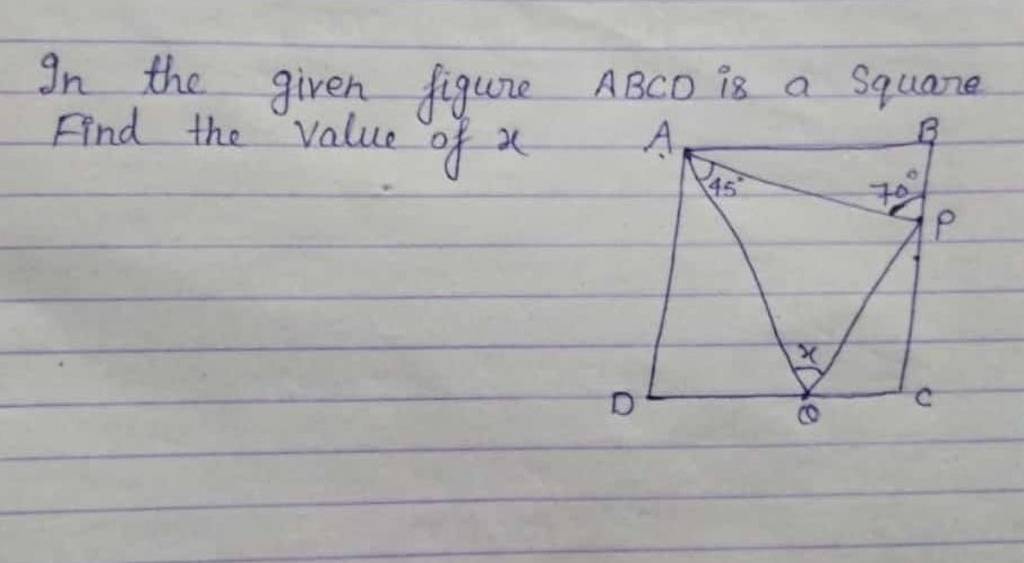 In the given figure ABCD is a Square
Find the Value of x
A B
45° 70°
P
x
D Q C